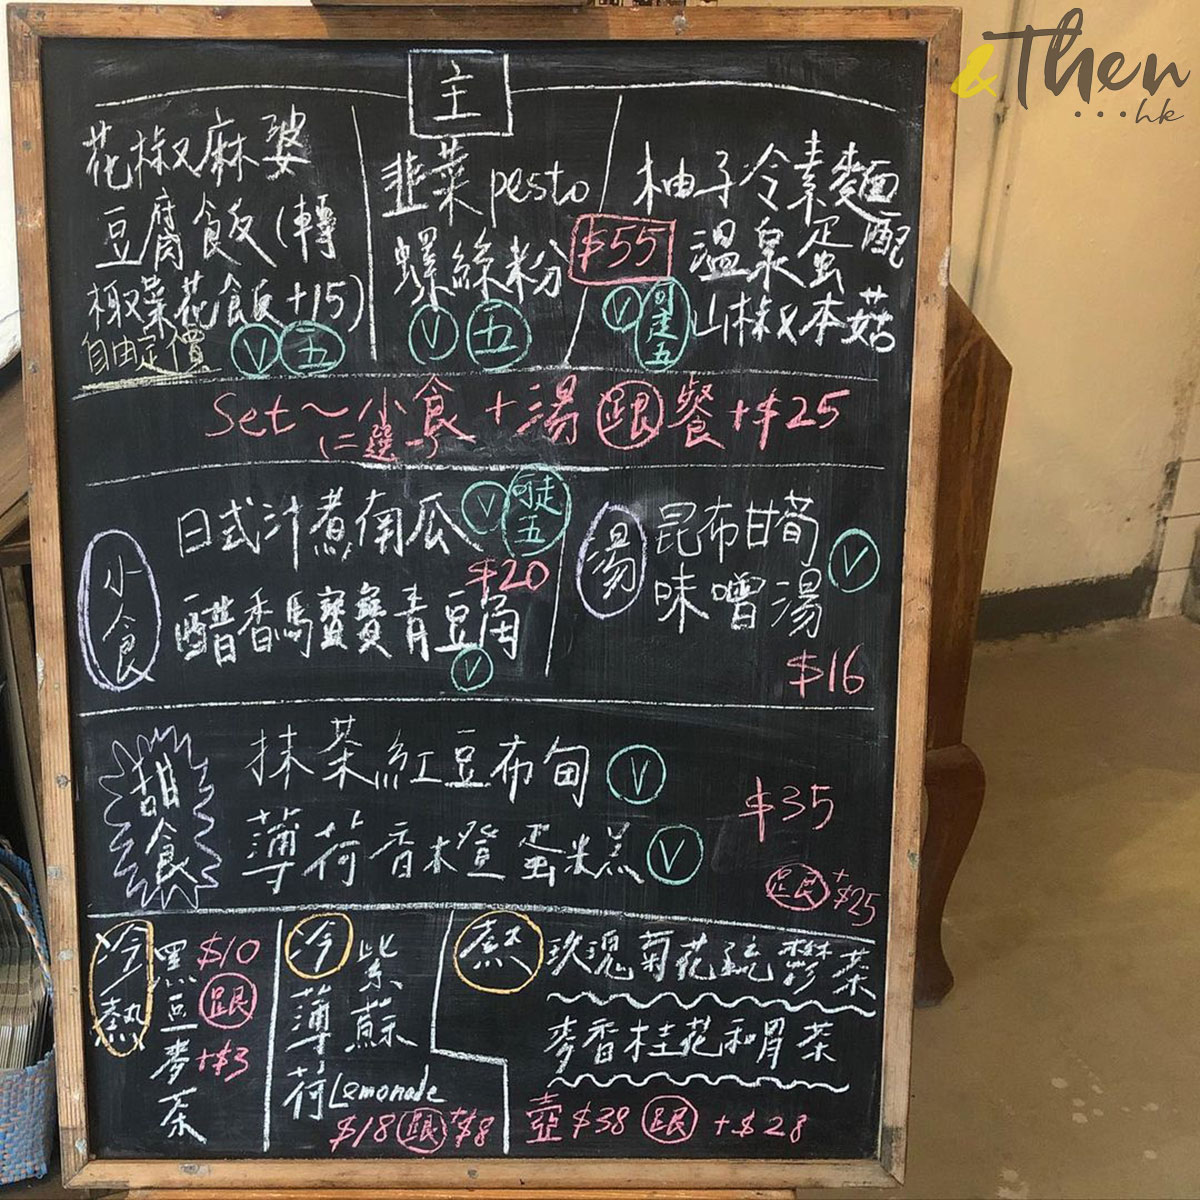 &Then
...hk
主
花椒麻婆
豆腐飯(轉
椰菜花飯+15)
自由定價 V 五
韮菜 pesto
螺絲粉
V 五
$55
柚子冷素麵配
溫泉蛋
山椒木茹
V 可走五
Set~小食+湯 跟餐+$25
(二選一)
小食
日式汁煮南瓜 V 可走五
$20
醋香馬寶寶青豆角
V
湯
昆布甘荀
味噌湯
V
$16
甜食
抹茶紅豆布甸 V
薄荷香橙蛋糕 V
$35
跟+$25
冷熱
黑豆麥茶
$10
跟
+$3
冷
紫蘇
薄荷Lemonade
$18 跟+$8
熱
玫瑰菊花疏鬱茶
麥香桂花和胃茶
壺 $38 跟 +$28